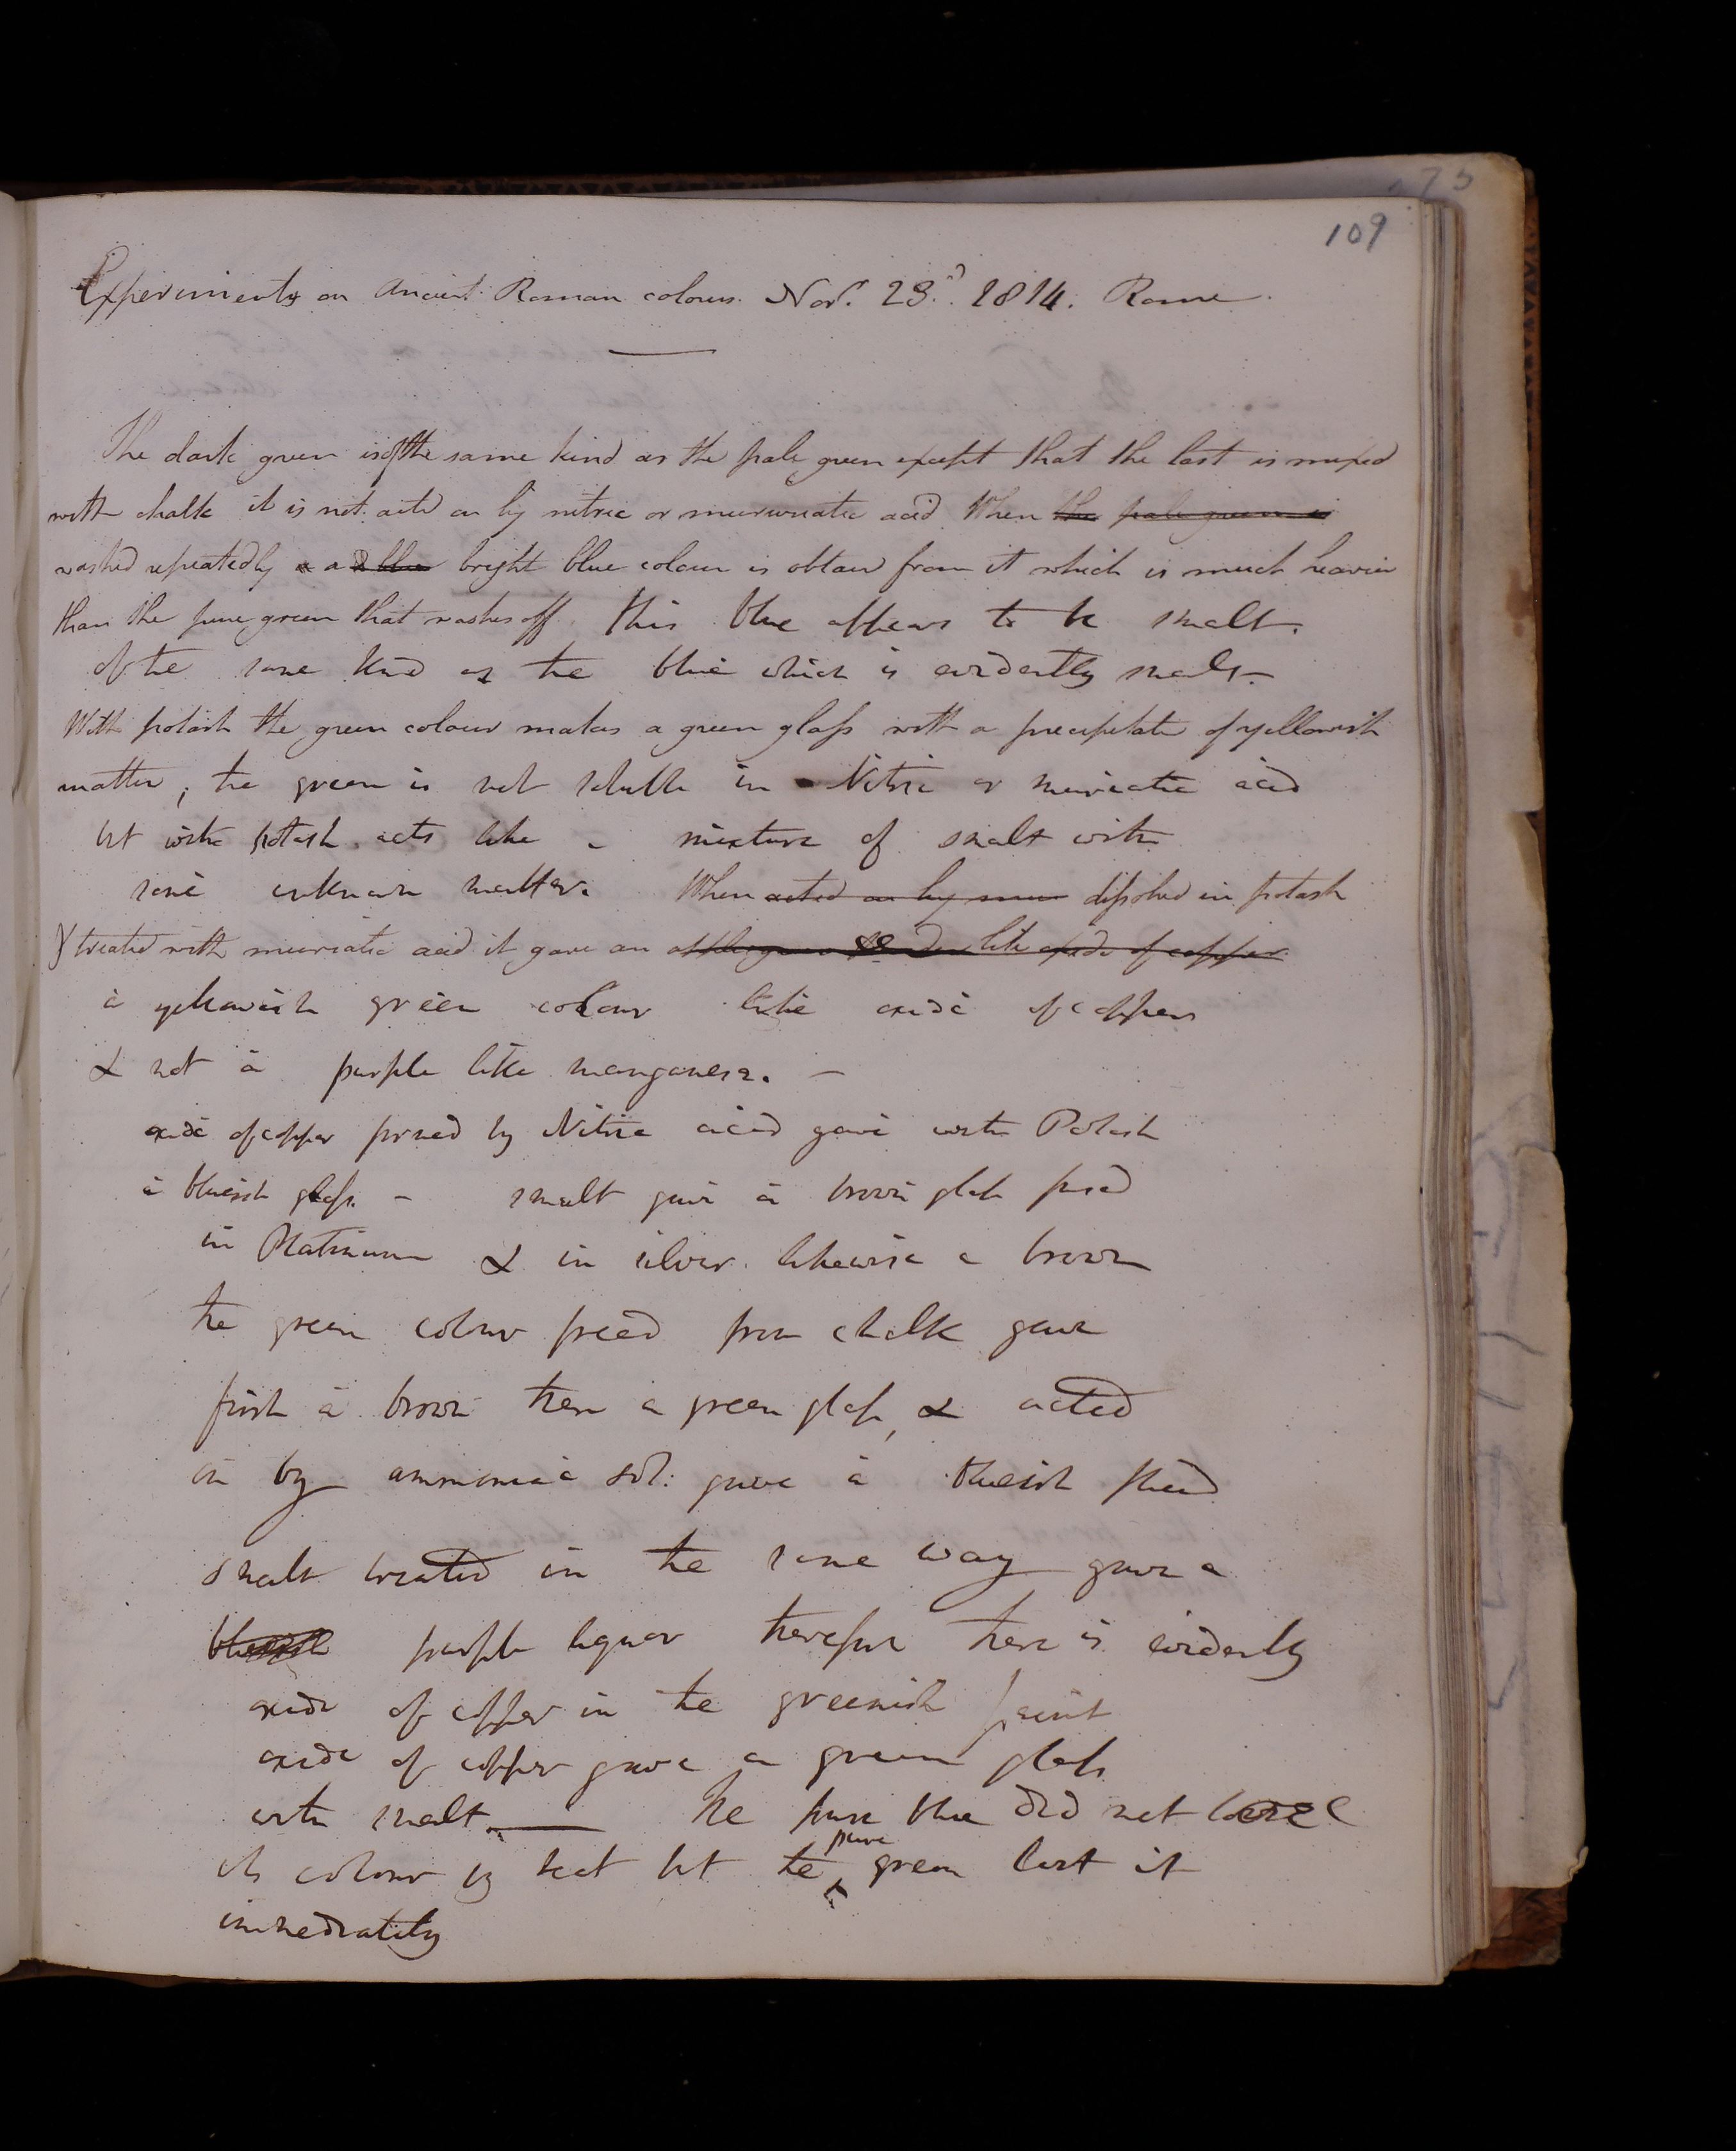 109
Experiments on Ancient Roman colours. Nov.r 23.d 1814. Rome.
The dark green is of the same kind as the pale green except that the last is mixed
with chalk it is not acted on by nitric or muriatic acid When the pale green is
washed repeatedly a blue bright blue colour is obtaind from it which is much heavier
than the pure green that washes off. This blue appears to be smalt.
of the same kind as the blue which is evidently smalt.—
With potash the green colour makes a green glass with a precipitate of yellowish
matter; the green is not soluble in Nitric or muriatic acid
but with potash acts like a mixture of smalt with
some unknown matter. When acted on by dissolved in potash
& treated with muriatic acid it gave an like oxide of copper
a yellowish green colour like oxide of copper
& not a purple like manganese. —
oxide of copper formed by Nitric acid gave with Potash
a blueish glass. — smalt gave a brown glass fused
in Platinum & in silver. likewise a brown
the green colour freed from chalk gave
first a brown then a green glass, & acted
on by ammoniac sol: gave a blueish fluid
smalt treated in the same way gave a
blueish purple liquor therefore there is evidently
oxide of copper in the greenish paint
oxide of copper gave a green glass
with smalt. — The pure blue did not loose
its colour by heat but the pure green lost it
immediately